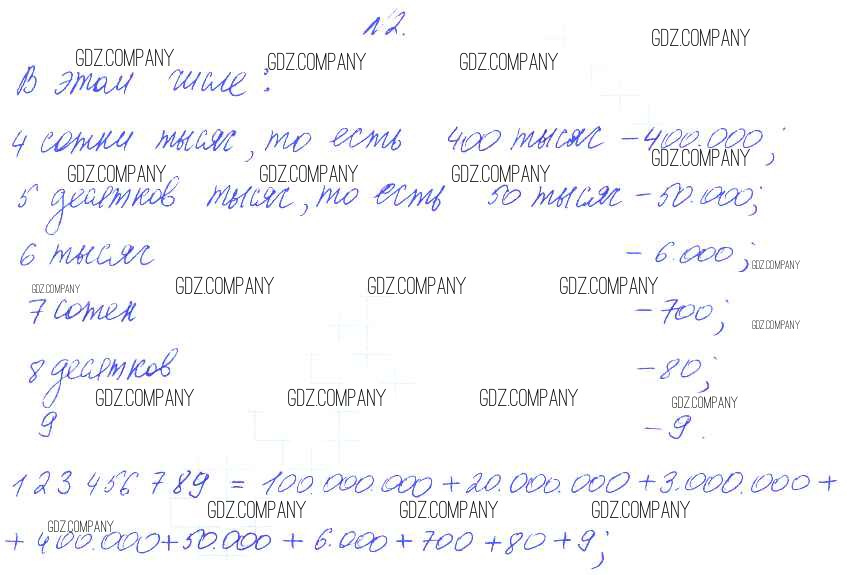 №2.
GDZ.COMPANY GDZ.COMPANY GDZ.COMPANY GDZ.COMPANY
В этом числе:
4 сотни тысяч, то есть 400 тысяч - 400.000;
GDZ.COMPANY GDZ.COMPANY GDZ.COMPANY GDZ.COMPANY
5 десятков тысяч, то есть 50 тысяч - 50.000;
6 тысяч - 6.000;
GDZ.COMPANY GDZ.COMPANY GDZ.COMPANY GDZ.COMPANY GDZ.COMPANY
7 сотен - 700;
GDZ.COMPANY
8 десятков - 80;
GDZ.COMPANY GDZ.COMPANY GDZ.COMPANY GDZ.COMPANY
9 - 9.
123 456 789 = 100.000.000 + 20.000.000 + 3.000.000 +
GDZ.COMPANY GDZ.COMPANY GDZ.COMPANY GDZ.COMPANY
+ 400.000 + 50.000 + 6.000 + 700 + 80 + 9;